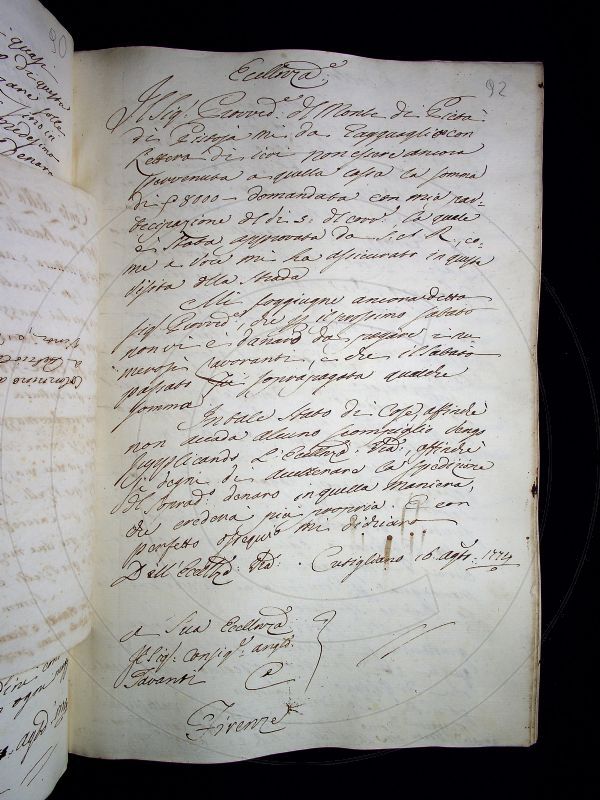 90
92
Ecellenza
Il Sig. Provved.e del Monte di Pietà
di Pistoja mi dà ragguaglio con
Lettera di ieri non essere ancora
pervenuta a quella Cassa la somma
di 8000 domandata con mia par-
tecipazione del dì 3. del corr. la quale
è stata approvata da S. A. R., co-
me a voce mi ha assicurato in questa
visita della Strada
Mi soggiugne ancora detto
Sig. Provved.e, che p il prossimo Sabato
non vi è danaro da pagare i nu-
merosi Lavoranti, e che il Sabato
passato fù sopra pagata qualche
somma
In tale stato di Cose, affinchè
non accada alcuno scompiglio vengo
supplicando L'Ecellenz. Vra, affinchè
si degni di accellerare la spedizione
del denaro in quella maniera,
che crederà più propria. E con
perfetto ossequio mi dichiaro
Dell' Ecellenz. Vra. Cutigliano 16. agto. 1774
A Sua Ecellenza
Il Sig. Consig.e Angelo
Tavanti
Firenze